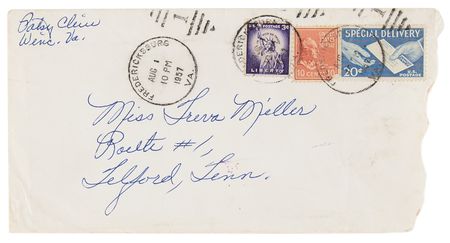 Patsy Cline
Winc. Va.
FREDERICKSBURG
AUG 1
10 PM
1957
VA.
FREDERICKSBURG
U.S. POSTAGE 3¢
LIBERTY
10 CENTS 10
SPECIAL DELIVERY
20¢
U.S. POSTAGE
Miss Treva Miller
Route #1,
Telford, Tenn.